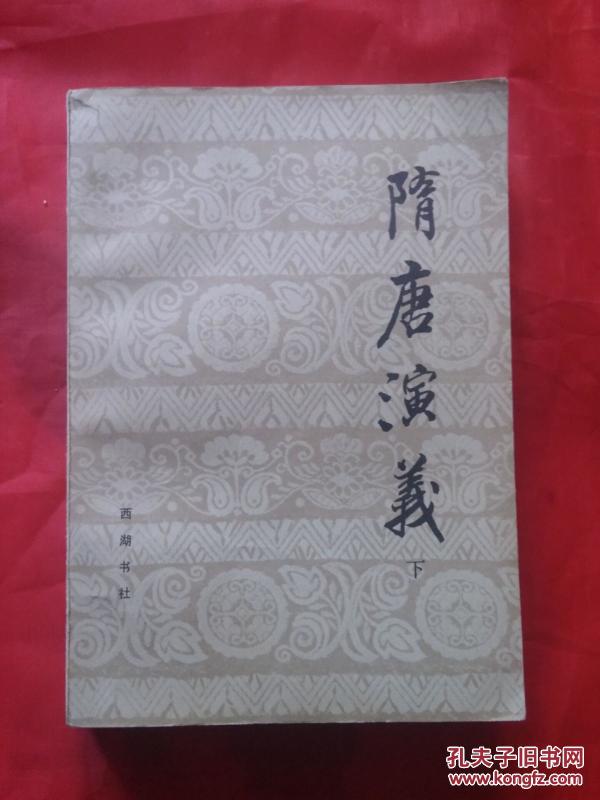 隋唐演義
下
西湖书社
孔夫子旧书网
www.kongfz.com